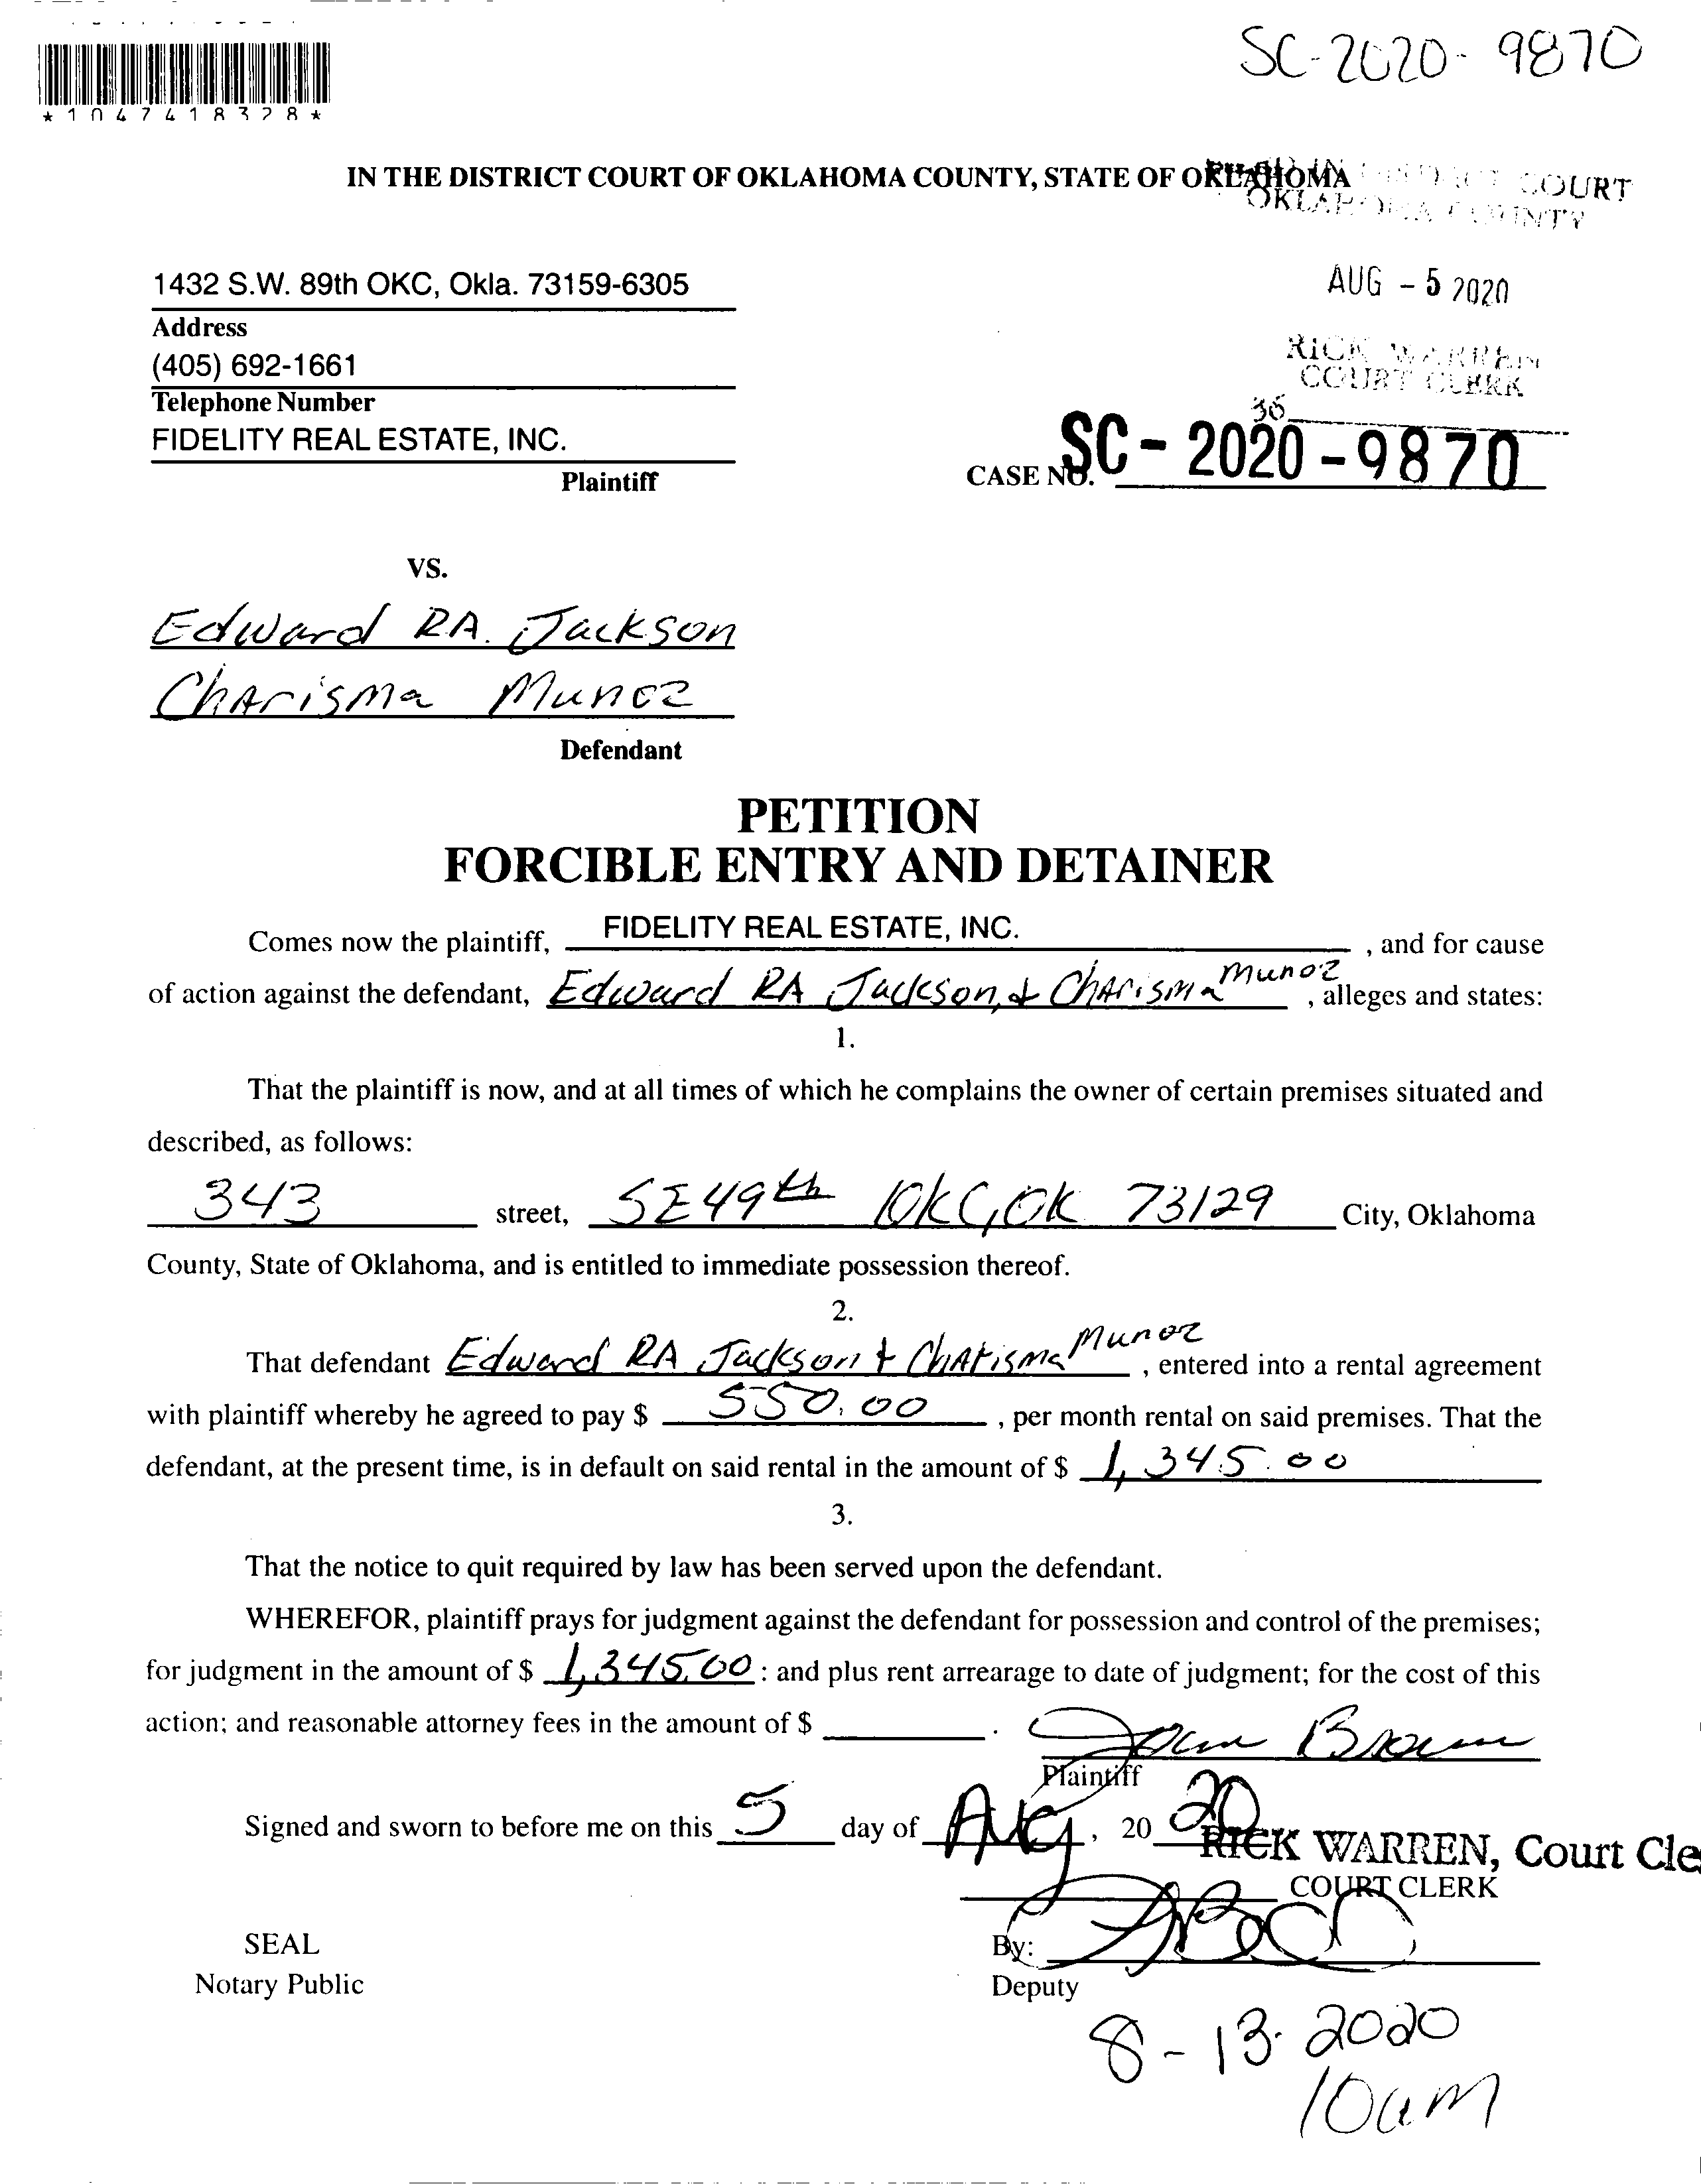 SC-2020-9870
*1047418328*
IN THE DISTRICT COURT OF OKLAHOMA COUNTY, STATE OF OKLAHOMA
FILED IN DISTRICT COURT
OKLAHOMA COUNTY
1432 S.W. 89th OKC, Okla. 73159-6305
AUG - 5 2020
Address
(405) 692-1661
RICK WARREN
COURT CLERK
Telephone Number
36
FIDELITY REAL ESTATE, INC.
Plaintiff
CASE NO. SC-2020-9870
VS.
Edward RA. Jackson
Charisma Munoz
Defendant
PETITION
FORCIBLE ENTRY AND DETAINER
Comes now the plaintiff, FIDELITY REAL ESTATE, INC. , and for cause
of action against the defendant, Edward RA Jackson, & Charisma Munoz , alleges and states:
1.
That the plaintiff is now, and at all times of which he complains the owner of certain premises situated and
described, as follows:
343 street, SE 49th OKC, OK 73129 City, Oklahoma
County, State of Oklahoma, and is entitled to immediate possession thereof.
2.
That defendant Edward RA Jackson & Charisma Munoz , entered into a rental agreement
with plaintiff whereby he agreed to pay $ 550.00 , per month rental on said premises. That the
defendant, at the present time, is in default on said rental in the amount of $ 1,345.00
3.
That the notice to quit required by law has been served upon the defendant.
WHEREFOR, plaintiff prays for judgment against the defendant for possession and control of the premises;
for judgment in the amount of $ 1,345.00 : and plus rent arrearage to date of judgment; for the cost of this
action; and reasonable attorney fees in the amount of $ .
Joan Brown
Plaintiff
Signed and sworn to before me on this 5 day of Aug, 20 20
RICK WARREN, Court Cle
COURT CLERK
SEAL
By:
Notary Public
Deputy
8-13-2020
10am